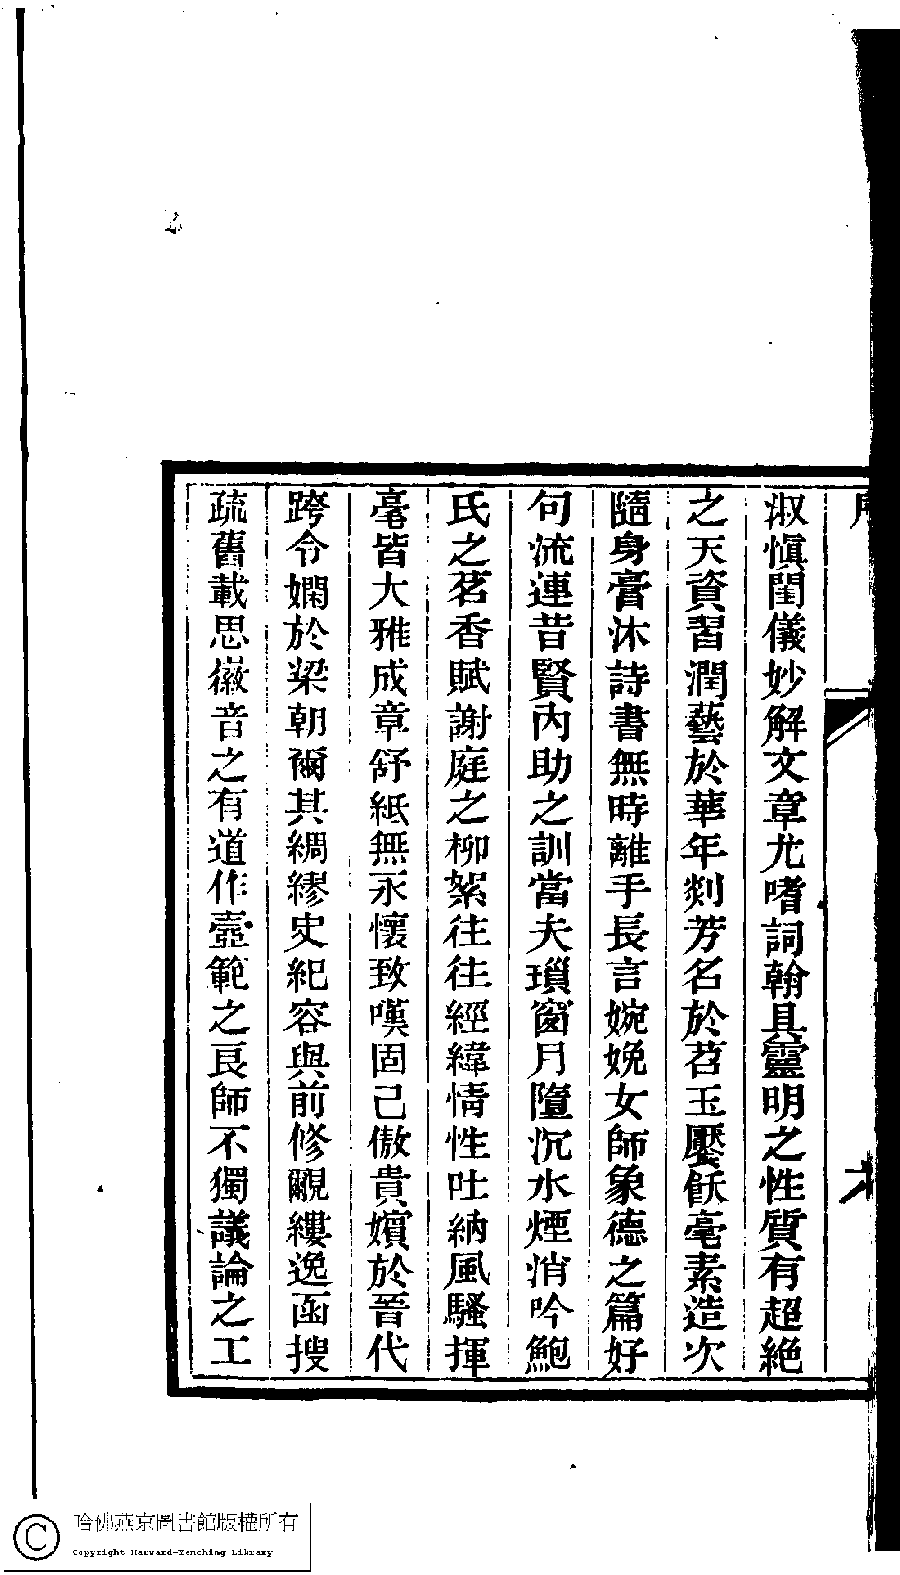 淑慎閨儀妙解文章尤嗜詞翰具靈明之性質有超絶
之天資習潤藝於華年剡芳名於苕玉靨飫毫素造次
隨身膏沐詩書無時離手長言婉娩女師象德之篇好
句流連昔賢內助之訓當夫瑣窗月墮沉水煙消吟鮑
氏之茗香賦謝庭之柳絮往往經緯情性吐納風騷揮
毫皆大雅成章舒紙無永懷致嘆固己傲貴嬪於晉代
跨令嫻於梁朝爾其綢繆史紀容與前修覼縷逸函搜
疏舊載思徽音之有道作壼範之良師不獨議論之工
哈佛燕京圖書館版權所有
Copyright Harvard-Yenching Library